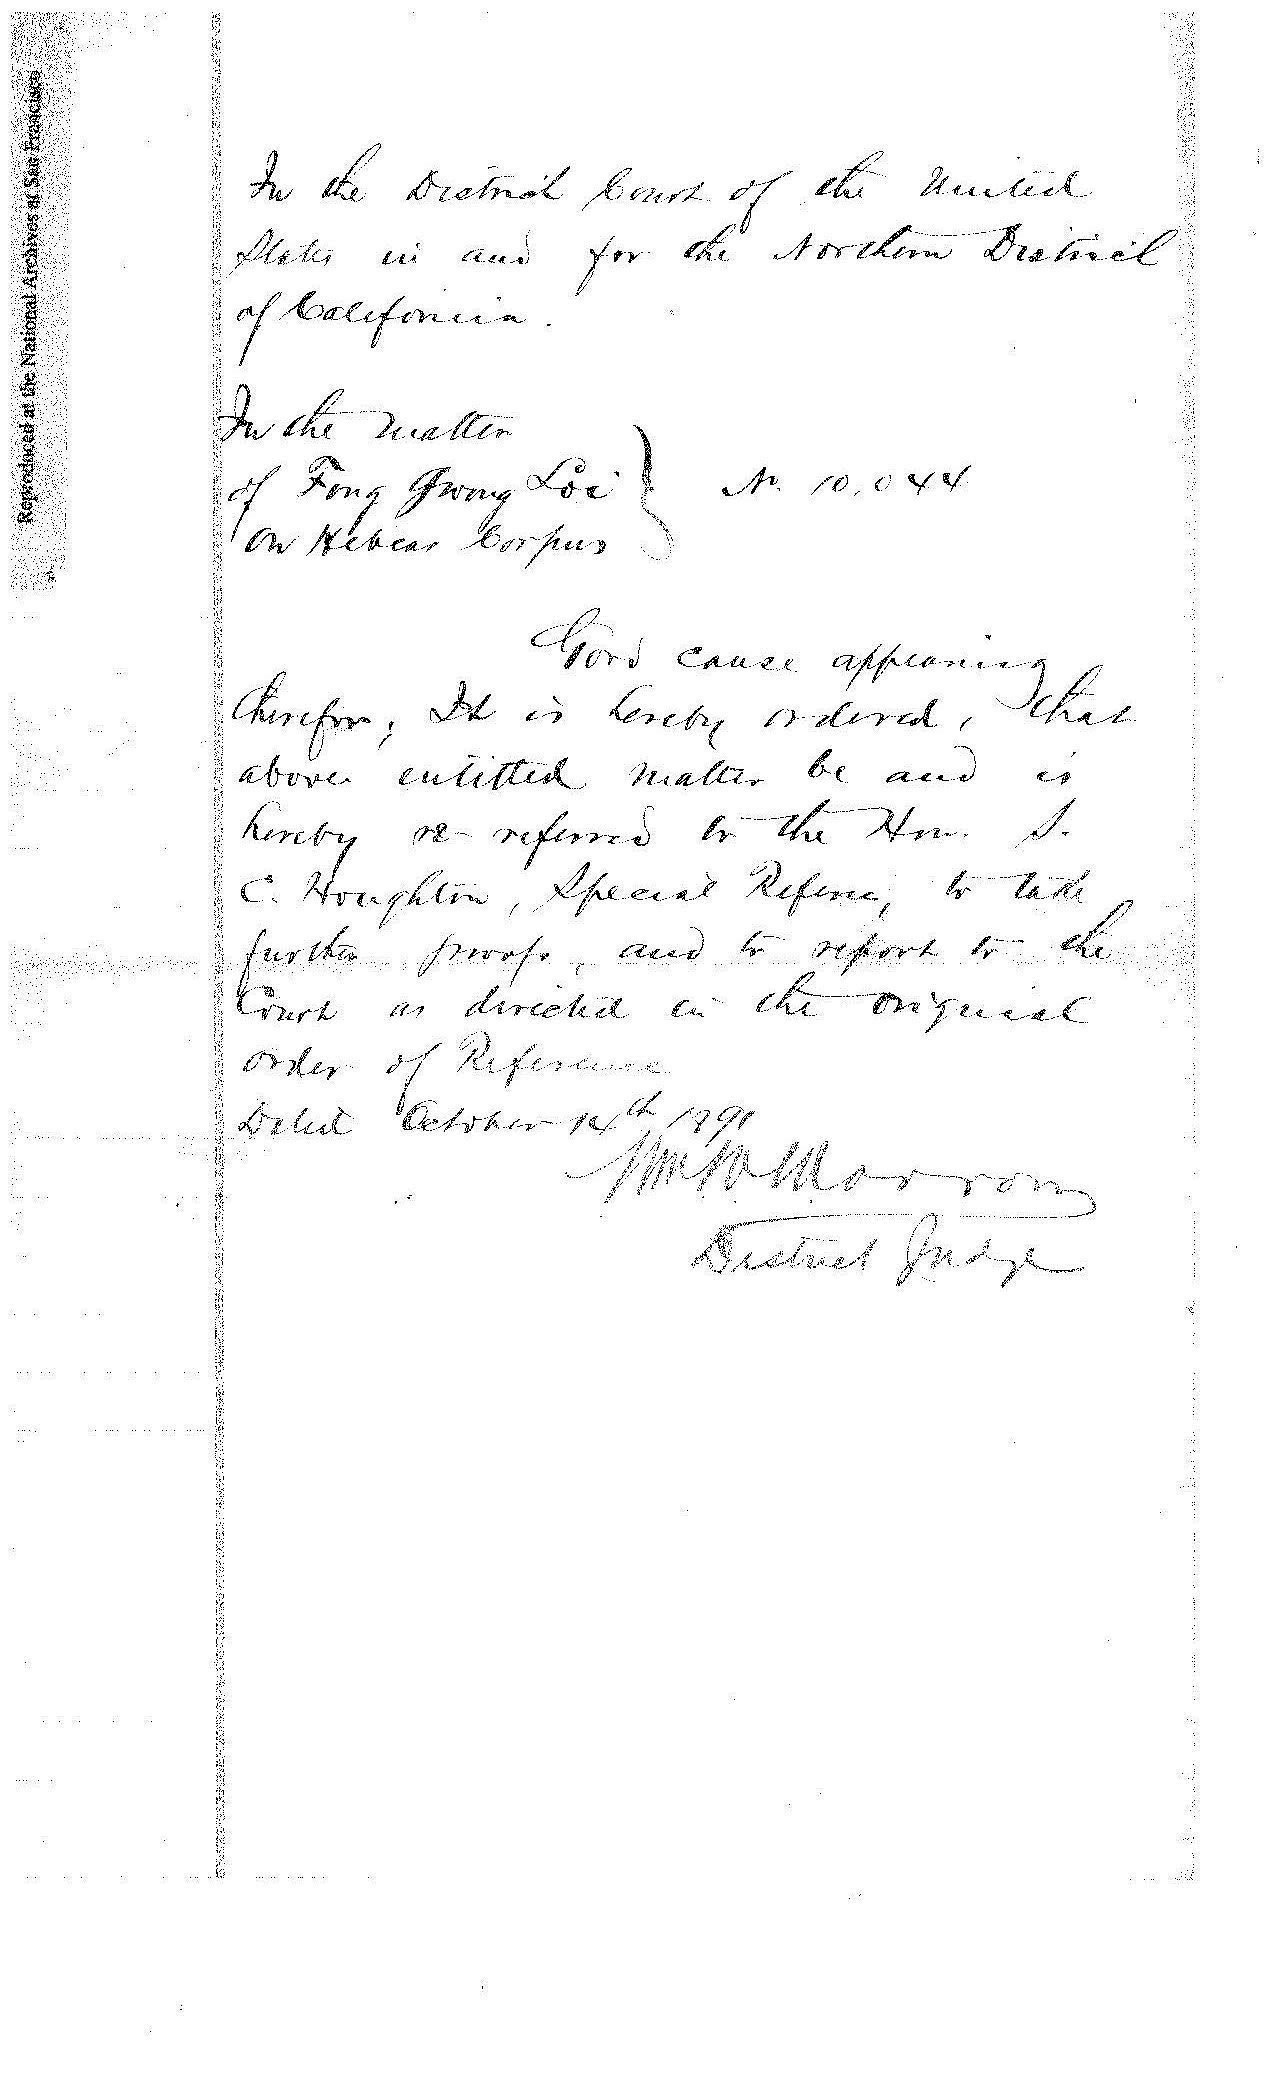 Reproduced at the National Archives at San Francisco
In the District Court of the United
States in and for the Northern District
of California.
In the matter
of Fong Gwong Loi
on Habeas Corpus
No. 10,044
Good cause appearing
therefor; It is hereby ordered, that
above entitled matter be and is
hereby re-referred to the Hon. S.
C. Houghton, Special Referee, to take
further proofs, and to report to the
Court as directed in the original
order of Reference
Dated October 14th 1891
Wm W Morrow
District Judge